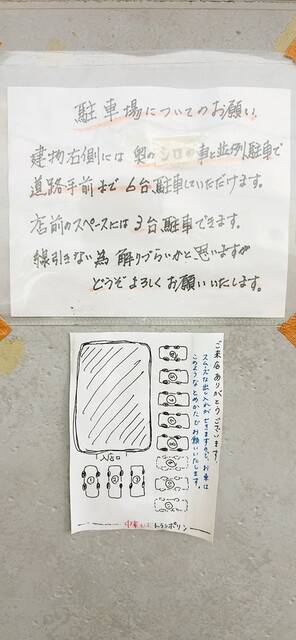 駐車場についてのお願い
建物右側には奥のシロの車と並列駐車で
道路手前まで6台駐車していただけます。
店前のスペースには3台駐車できます。
線引きない為解りづらいかと思いますが
どうぞよろしくお願いいたします。
ご来店ありがとうございます。
スムーズな出し入れができますので、お車は
このようなとめかたでお願いいたします。
入口
1 2 3
トランポリン